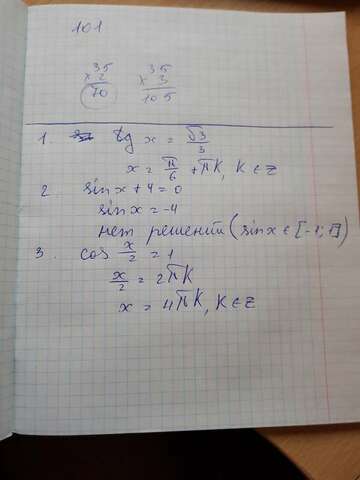 101
35 35
×2 ×3
70 105
1. tg x = √3/3
x = π/6 + πK, K ∈ Z
2. sin x + 4 = 0
sin x = -4
нет решений (sin x ∈ [-1; 1])
3. cos x/2 = 1
x/2 = 2πK
x = 4πK, K ∈ Z